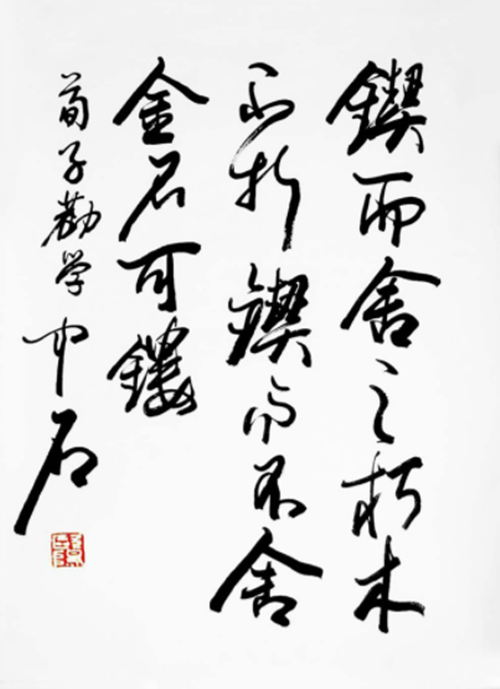 锲而舍之朽木
不折锲而不舍
金石可镂
荀子劝学 中石